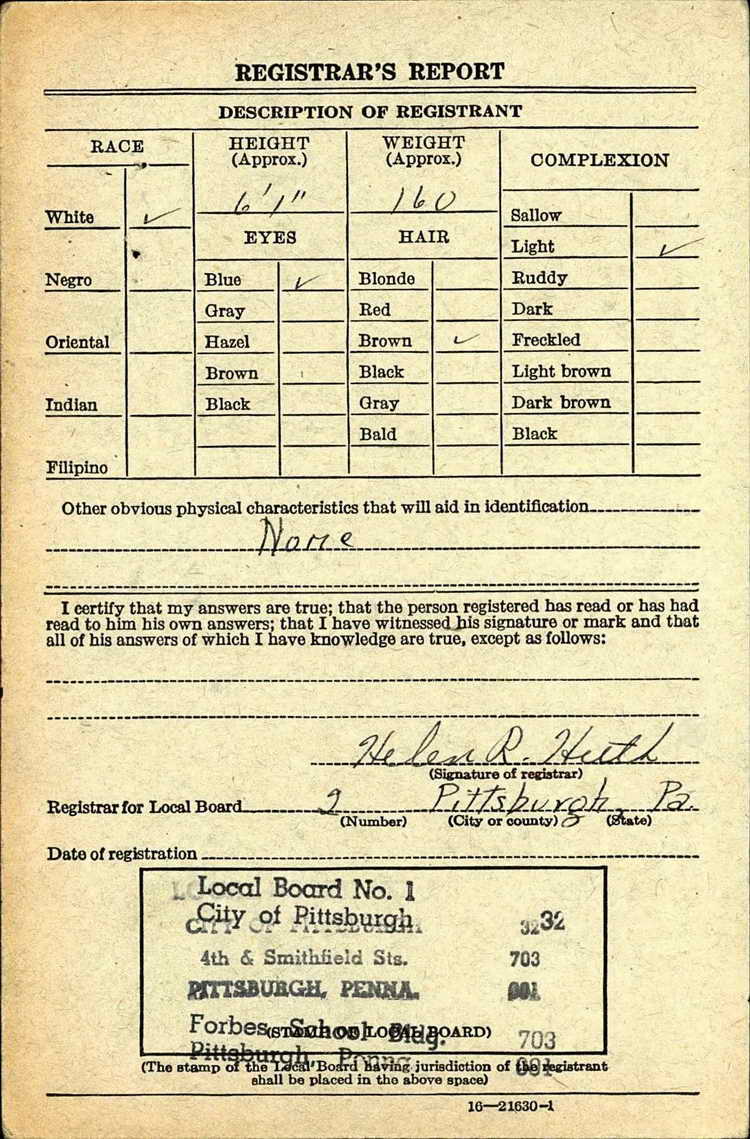 REGISTRAR'S REPORT
DESCRIPTION OF REGISTRANT
RACE
HEIGHT
(Approx.)
WEIGHT
(Approx.)
COMPLEXION
6'1"
160
White ✓
EYES
HAIR
Sallow
Light ✓
Negro
Blue ✓
Blonde
Ruddy
Gray
Red
Dark
Oriental
Hazel
Brown ✓
Freckled
Brown
Black
Light brown
Indian
Black
Gray
Dark brown
Bald
Black
Filipino
Other obvious physical characteristics that will aid in identification
None
I certify that my answers are true; that the person registered has read or has had
read to him his own answers; that I have witnessed his signature or mark and that
all of his answers of which I have knowledge are true, except as follows:
Helen R.
(Signature of registrar)
Registrar for Local Board 9 Pittsburgh Pa.
(Number) (City or county) (State)
Date of registration
Local Board No. 1
City of Pittsburgh 32 32
CITY OF PITTSBURGH
4th & Smithfield Sts. 703
PITTSBURGH, PENNA. 001
Forbes School Bldg. 703
(STAMP OF LOCAL BOARD)
Pittsburgh, Penna. 001
(The stamp of the Local Board having jurisdiction of the registrant
shall be placed in the above space)
16—21630-1